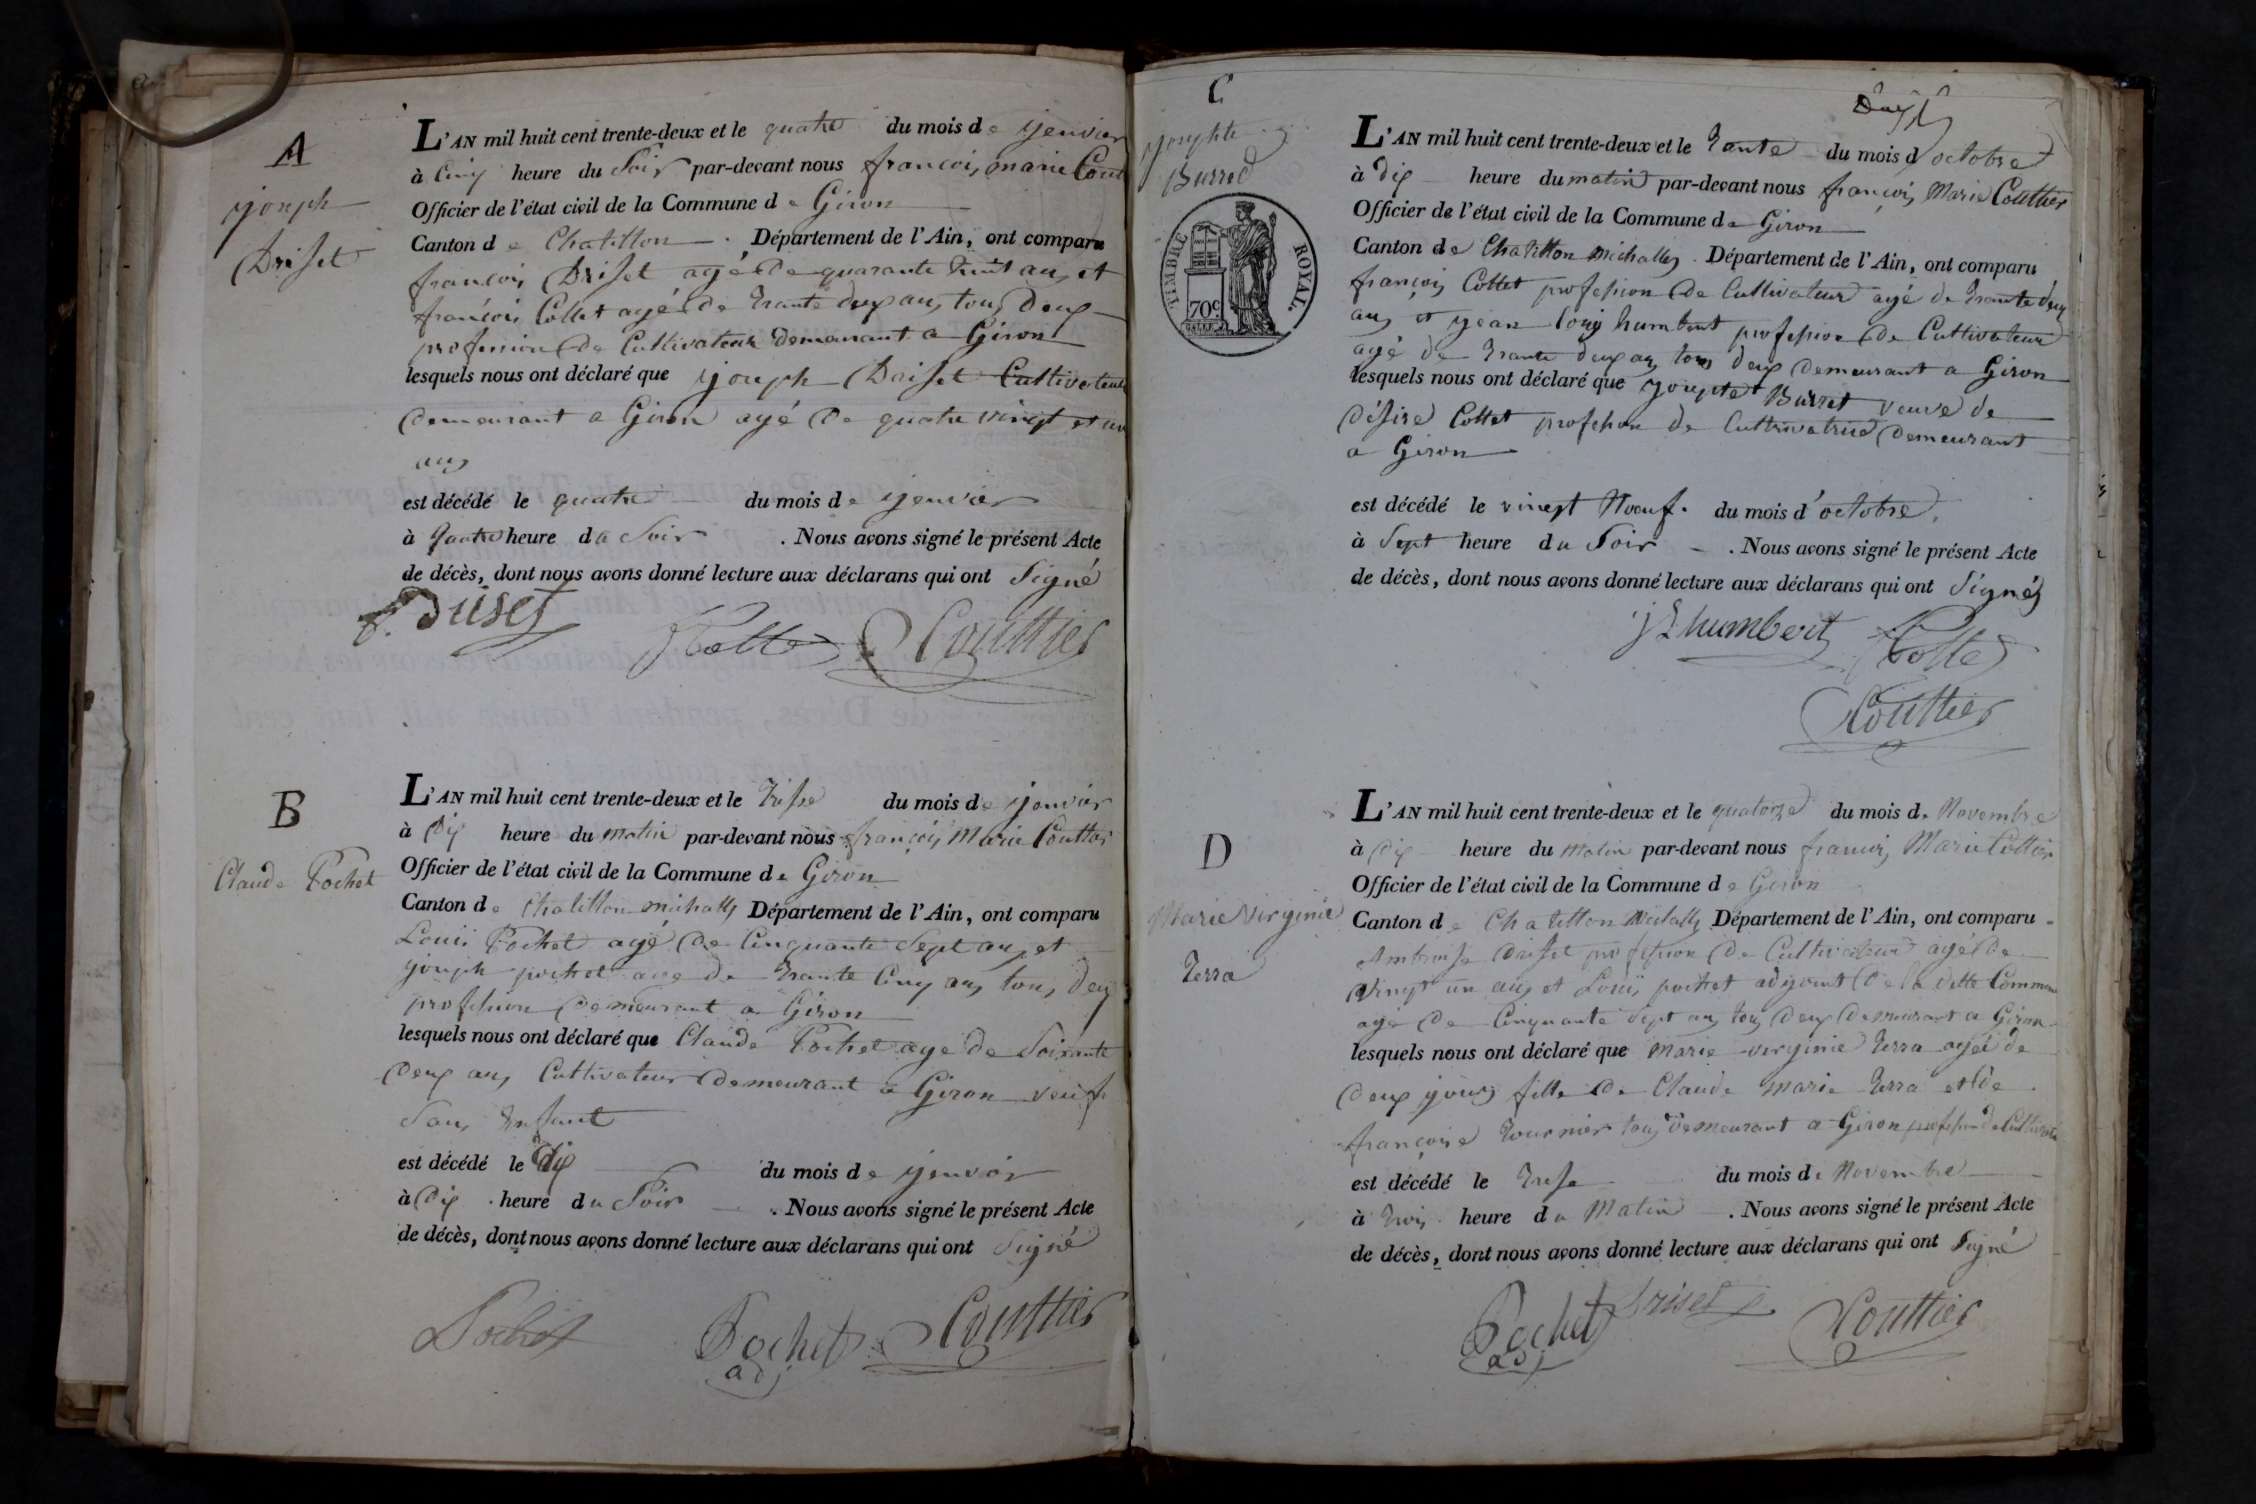 A
joseph
Driset
L'AN mil huit cent trente-deux et le quatre du mois de jenvier
à Cinq heure du Soir par-devant nous francois marie Cout
Officier de l'état civil de la Commune de Giron
Canton de Chatillon. Département de l'Ain, ont comparu
francois Driset agé de quarante huit ans et
francois Collet agé de trante deux ans tous deux
profession de Cultivateur demeurant a Giron
lesquels nous ont déclaré que joseph Driset Cultivateur
demeurant a Giron agé de quatre vingt et un
ans
est décédé le quatre du mois de jenvier
à quatre heure du Soir. Nous avons signé le présent Acte
de décès, dont nous avons donné lecture aux déclarans qui ont Signé
f. Driset
fCollet Couttier
B
Claude Pochet
L'AN mil huit cent trente-deux et le treise du mois de jenvier
à Dix heure du matin par-devant nous françois Marie Couttier
Officier de l'état civil de la Commune de Giron
Canton de Chatillon michalle Département de l'Ain, ont comparu
Louis Pochet agé de Cinquante Sept ans et
joseph pochet age de trante Cinq ans tous deux
profession demeurant a Giron
lesquels nous ont déclaré que Claude Pochet age de Soixante
Deux ans Cultivateur demeurant a Giron veuf
Sans Enfant
est décédé le dix du mois de jenvier
à Dix heure du Soir. Nous avons signé le présent Acte
de décès, dont nous avons donné lecture aux déclarans qui ont Signé
Pochet Pochet Couttier
adj
C
josephte
Burred
TIMBRE ROYAL.
70c
L'AN mil huit cent trente-deux et le trante du mois d octobre
à Dix heure du matin par-devant nous françois Marie Couttier
Officier de l'état civil de la Commune de Giron
Canton de Chatillon michalle. Département de l'Ain, ont comparu
françois Collet profession de Cultivateur agé de trante deux
ans et jean louis humbert profession de Cultivateur
agé de trante deux ans tous deux demeurant a Giron
lesquels nous ont déclaré que josephte Burret veuve de
Désire Collet profession de Cultivatrice demeurant
a Giron
est décédé le vingt Noeuf. du mois d'octobre
à Sept heure du Soir. Nous avons signé le présent Acte
de décès, dont nous avons donné lecture aux déclarans qui ont Signés
jLhumbert fCollet
Couttier
D
Marie virginie
Terra
L'AN mil huit cent trente-deux et le quatorse du mois de Novembre
à Dix heure du Matin par-devant nous francois Marie Couttier
Officier de l'état civil de la Commune de Giron
Canton de Chatillon Michalle Département de l'Ain, ont comparu
Ambroise Driset profession de Cultivateur agé de
Vingt un ans et Louis pochet adjoint de la dette Commune
agé de Cinquante Sept ans tous deux demeurant a Giron
lesquels nous ont déclaré que Marie virginie Terra agée de
Deux jours fille de Claude marie Terra et de
françoise Tournier tous demeurant a Giron profession de Cultivateur
est décédé le treise du mois de Novembre
à trois heure du Matin. Nous avons signé le présent Acte
de décès, dont nous avons donné lecture aux déclarans qui ont Signé
Pochet Driset Couttier
adj